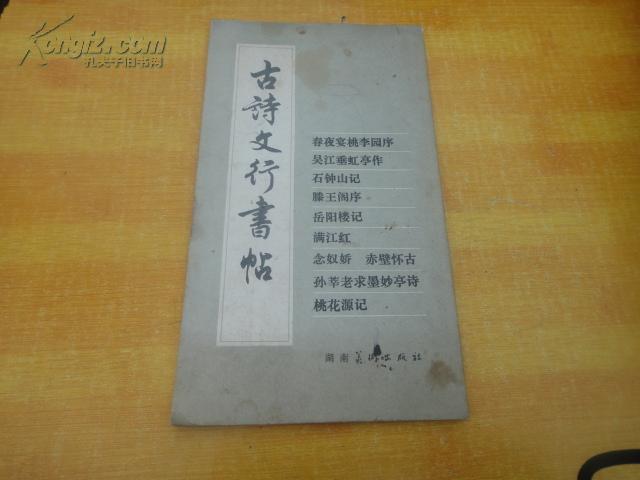 Kongfz.com
孔夫子旧书网
古詩文行書帖
春夜宴桃李园序
吴江垂虹亭作
石钟山记
滕王阁序
岳阳楼记
满江红
念奴娇 赤壁怀古
孙莘老求墨妙亭诗
桃花源记
湖南美术出版社